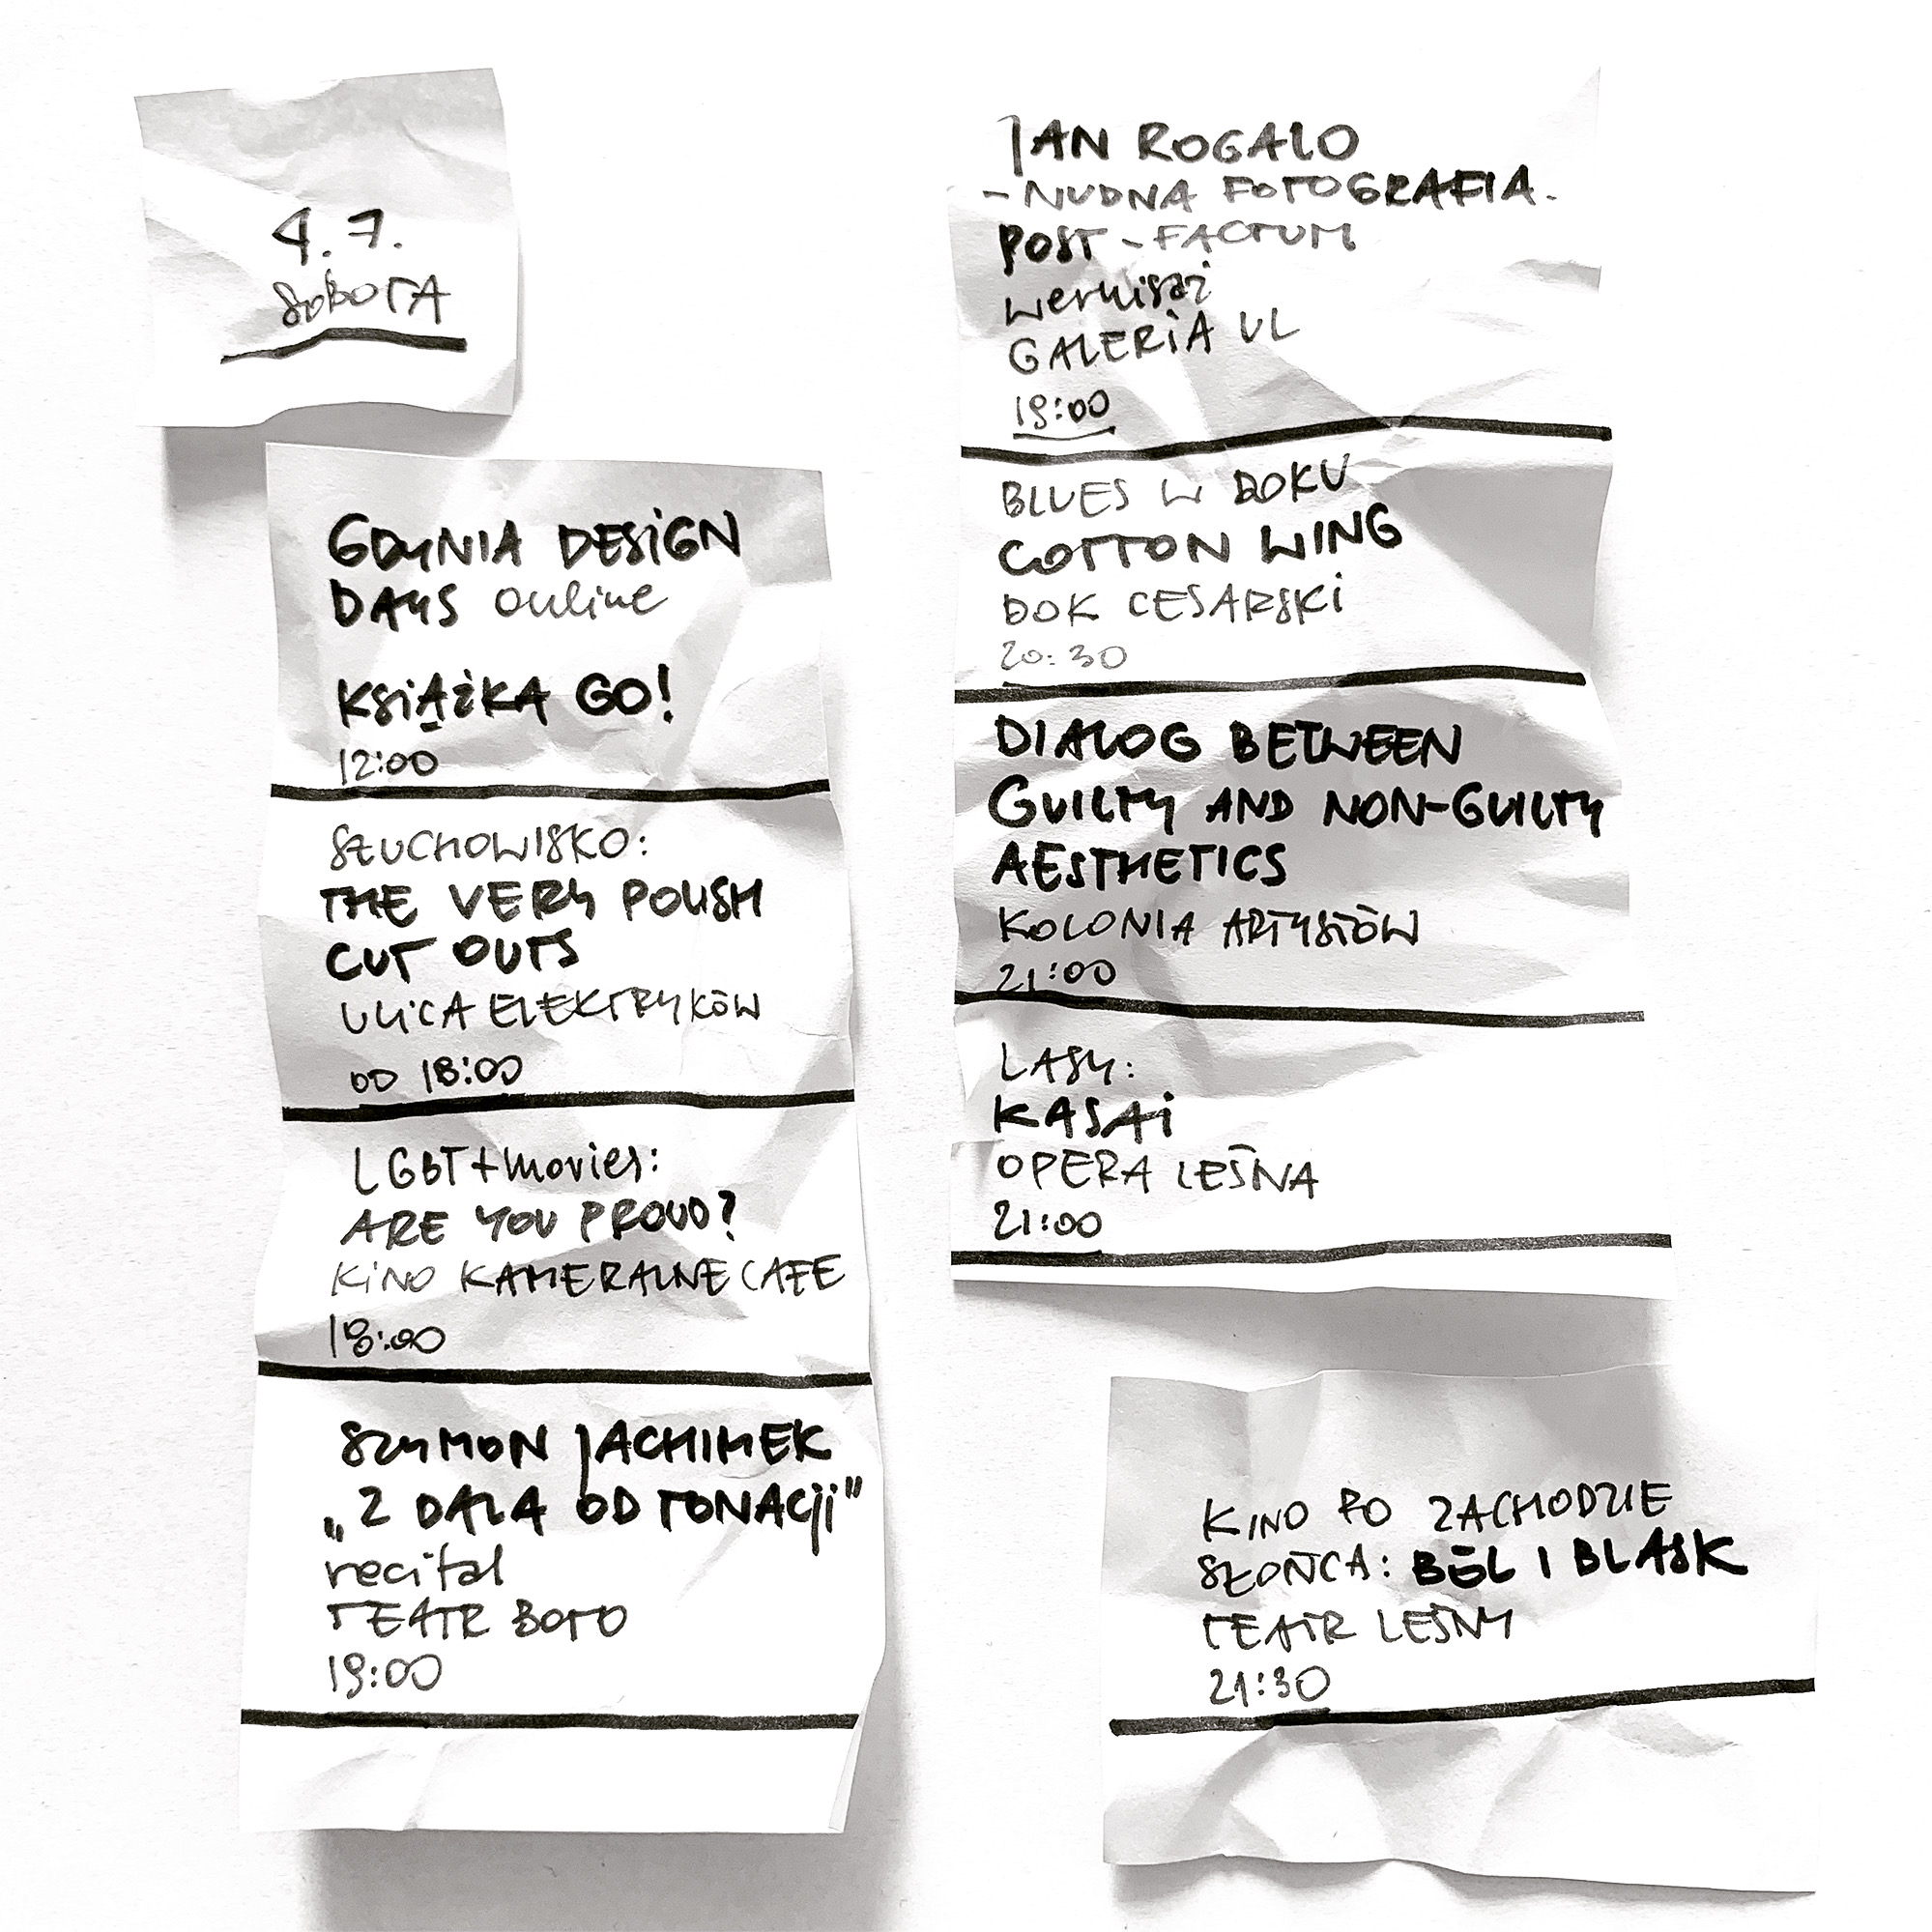 4.7.
SOBOTA
GDYNIA DESIGN
DAYS online
KSIĄŻKA GO!
12:00
SŁUCHOWISKO:
THE VERY POLISH
CUT OUTS
ULICA ELEKTRYKÓW
OD 18:00
LGBT+movies:
ARE YOU PROUD?
KINO KAMERALNE CAFE
18:00
SZYMON JACHIMEK
„Z DALA OD TONACJI”
recital
TEATR BOTO
19:00
JAN ROGALO
- NUDNA FOTOGRAFIA.
POST-FACTUM
wernisaż
GALERIA UL
19:00
BLUES W DOKU
COTTON WING
DOK CESARSKI
20:30
DIALOG BETWEEN
GUILTY AND NON-GUILTY
AESTHETICS
KOLONIA ARTYSTÓW
21:00
LASY:
KASAI
OPERA LEŚNA
21:00
KINO PO ZACHODZIE
SŁOŃCA: BÓL I BLASK
TEATR LEŚNY
21:30